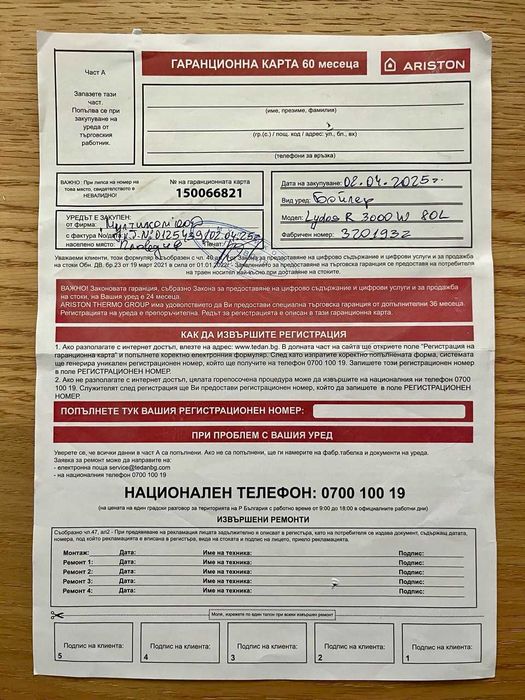 Част А
Запазете тази
част.
Попълва се при
закупуване на
уреда от
търговския
работник.
ГАРАНЦИОННА КАРТА 60 месеца
ARISTON
(име, презиме, фамилия)
(гр.(с.) / пощ. код / адрес: ул., бл., вх)
(телефони за връзка)
ВАЖНО: При липса на номер на
това място, свидетелството е
НЕВАЛИДНО!
№ на гаранционната карта
150066821
УРЕДЪТ Е ЗАКУПЕН:
от фирма:
с фактура No/дата
населено място: Пловдив Печат:
Дата на закупуване: 02.04.2025г.
Вид уред: Бойлер
Модел: Lydos R 3000W 80L
Фабричен номер: 3201932
Уважаеми клиенти, този формуляр е съобразен с чл. от Закона за предоставяне на цифрово съдържание и цифрови услуги и за продажба
на стоки Обн. ДВ. бр.23 от 19 март 2021 в сила от 01.01.2022г. Заявлението за предоставяне на търговска гаранция се предоставя на потребителя
на траен носител най-късно при доставяне на стоките.
ВАЖНО! Законовата гаранция, съобразно Закона за предоставяне на цифрово съдържание и цифрови услуги и за продажба
на стоки, на Вашия уред е 24 месеца.
ARISTON THERMO GROUP има удоволствието да Ви предостави специална търговска гаранция от допълнителни 36 месеца.
Регистрацията на уреда е препоръчителна. Редът за регистрация е описан в тази гаранционна карта.
КАК ДА ИЗВЪРШИТЕ РЕГИСТРАЦИЯ
1. Ако разполагате с интернет достъп, влезте на адрес: www.tedan.bg. В долната част на сайта ще откриете поле "Регистрация на
гаранционна карта" и попълнете коректно електронния формуляр. След като изпратите коректно попълнената форма, системата
ще генерира уникален регистрационен номер, който ще получите на телефон 0700 100 19. Запишете този регистрационен номер
в поле РЕГИСТРАЦИОНЕН НОМЕР.
2. Ако не разполагате с интернет достъп, цялата горепосочена процедура може да извършите на национални ни телефон 0700
100 19. Служителят след регистрация ще Ви предостави регистрационен номер, който да запишете в поле РЕГИСТРАЦИОНЕН
НОМЕР.
ПОПЪЛНЕТЕ ТУК ВАШИЯ РЕГИСТРАЦИОНЕН НОМЕР:
ПРИ ПРОБЛЕМ С ВАШИЯ УРЕД
Уверете се, че всички данни в част А са попълнени. Ако не са попълнени, ще ги намерите на фабр.табелка и документи на уреда.
Заявка за ремонт може да направите на:
- електронна поща service@tedanbg.com
- на националния телефон 0700 100 19
НАЦИОНАЛЕН ТЕЛЕФОН: 0700 100 19
(на цената на един градски разговор за територията на Р България с работно време от 9:00 до 18:00 в официалните работни дни)
ИЗВЪРШЕНИ РЕМОНТИ
Съобразно чл.47, ал2 - При предявяване на рекламация лицата задължително я описват в регистъра, като на потребителя се издава документ, съдържащ датата,
номера, под който рекламацията е вписана в регистъра, вида на стоката и подпис на лицето, приело рекламацията.
Монтаж: Дата: Име на техника: Подпис:
Ремонт 1: Дата: Име на техника: Подпис:
Ремонт 2: Дата: Име на техника: Подпис:
Ремонт 3: Дата: Име на техника: Подпис:
Ремонт 4: Дата: Име на техника: Подпис:
Моля, изрежете по един талон при всеки извършен ремонт
Подпис на клиента: Подпис на клиента: Подпис на клиента: Подпис на клиента: Подпис на клиента:
5 4 3 2 1